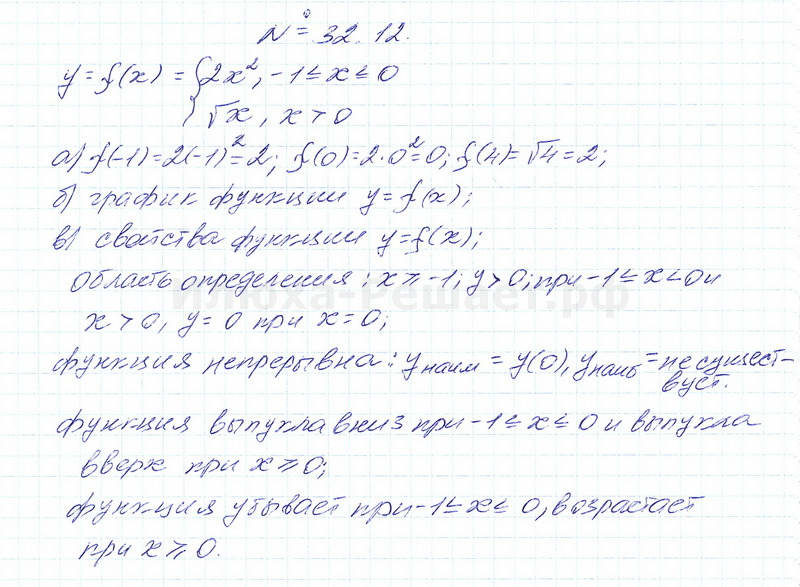 № 32.12.
y = f(x) = {2x², -1 ≤ x ≤ 0
√x, x > 0
а) f(-1) = 2(-1)² = 2; f(0) = 2·0² = 0; f(4) = √4 = 2;
б) график функции y = f(x);
в) свойства функции y = f(x);
область определения: x ≥ -1; y > 0; при -1 ≤ x < 0 и
x > 0, y = 0 при x = 0;
Илюха-Решает.рф
функция непрерывна: yнаим = y(0), yнаиб = не существ-
вует.
функция выпукла вниз при -1 ≤ x ≤ 0 и выпукла
вверх при x ≥ 0;
функция убывает при -1 ≤ x ≤ 0, возрастает
при x ≥ 0.